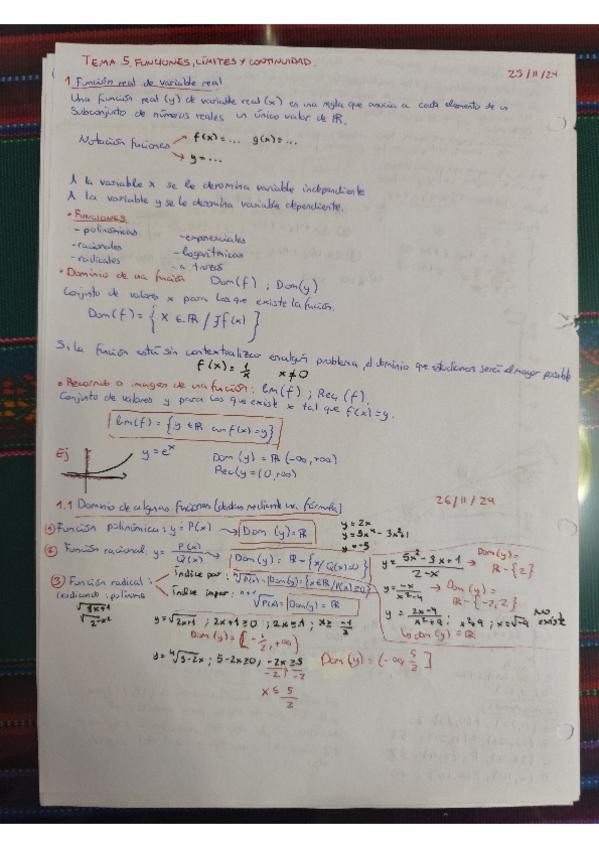 TEMA 5. FUNCIONES, LÍMITES Y CONTINUIDAD.
25/11/24
1 Función real de variable real
Una función real (y) de variable real (x) es una regla que asocia a cada elemento de un
subconjunto de números reales un único valor de ℝ.
Notación funciones → f(x)=... g(x)=...
→ y=...
A la variable x se le denomina variable independiente
A la variable y se le denomina variable dependiente.
• FUNCIONES
- polinómicas - exponenciales
- racionales - logarítmicas
- radicales - a trozos
• Dominio de una función Dom(f) ; Dom(y)
Conjunto de valores x para los que existe la función.
Dom(f) = { x ∈ ℝ / ∃f(x) }
Si la función está sin contextualizar en algún problema, el dominio que estudiamos será el mayor posible
f(x) = 1/x x≠0
• Recorrido o imagen de una función: Im(f) ; Rec(f).
Conjunto de valores y para los que exist x tal que f(x)=y.
Im(f) = {y ∈ ℝ con f(x)=y}
Ej y=eˣ Dom (y) = ℝ (-∞,+∞)
Rec(y = (0,+∞)
1.1 Dominio de algunas funciones (dadas mediante una fórmula)
26/11/24
① Función polinómica: y = P(x) → Dom (y) = ℝ
y=2x
y=-5
② Función racional y = P(x)/Q(x) → Dom(y) = ℝ - {x/Q(x)=0}
y = 5x²-3x+1 / 2-x → Dom(y)= ℝ-{2}
③ Función radical: Índice par: → Dom(y) = {x∈ℝ/P(x)≥0}
(radicando: polinomio Índice impar: → Dom(y) = ℝ
y = -x / x²-4 → Dom(y) = ℝ-{-2,2}
y = 2x-4 / x²+9 ; x²+9 ; x=√-9 No existe
Dom(y) = ℝ
y=√2x+1 ; 2x+1≥0 ; 2x≥1 ; x≥ -1/2
Dom(y) = [-1/2, +∞)
y=⁴√5-2x ; 5-2x≥0 ; Dom(y) = (-∞, 5/2]
x ≤ 5/2